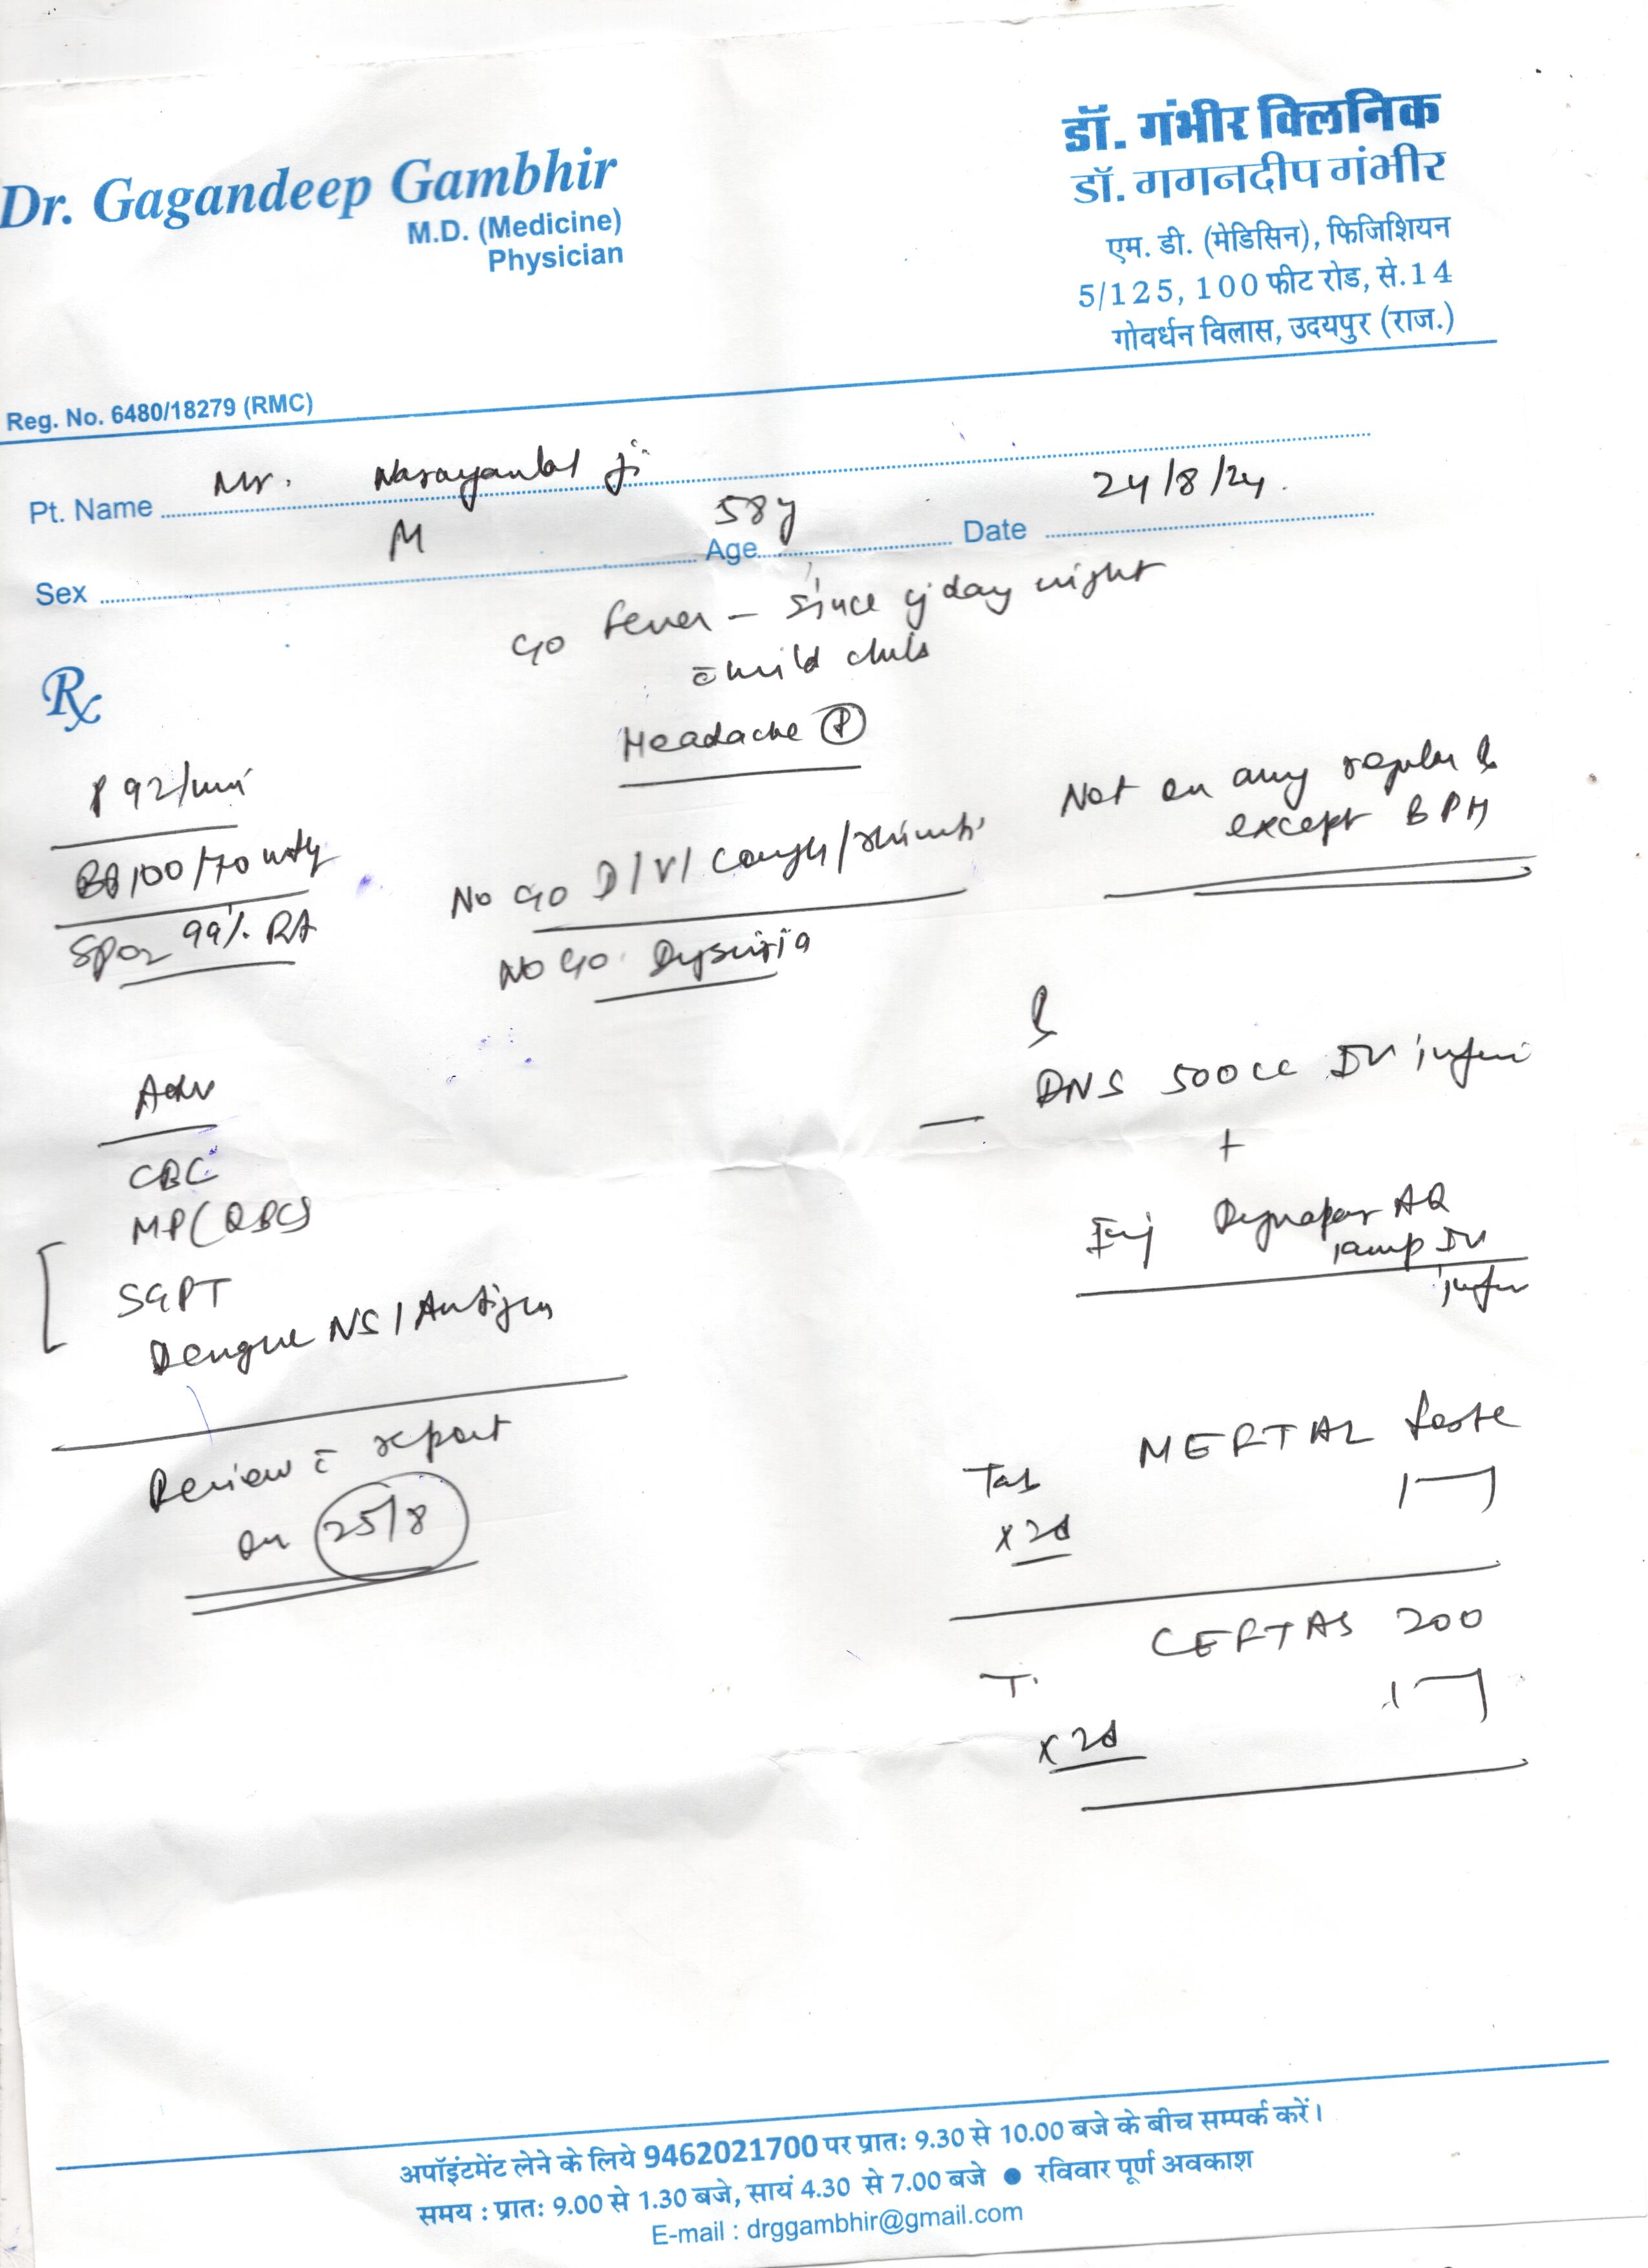 Dr. Gagandeep Gambhir
M.D. (Medicine)
Physician
डॉ. गंभीर क्लिनिक
डॉ. गगनदीप गंभीर
एम. डी. (मेडिसिन), फिजिशियन
5/125, 100 फीट रोड, से.14
गोवर्धन विलास, उदयपुर (राज.)
Reg. No. 6480/18279 (RMC)
Pt. Name Mr. Narayanlal ji
Sex M Age 58y Date 24/8/24.
Rx
C/O fever - since y'day night
c̄ mild chills
Headache (P)
P 92/min
BP 100/70 mmHg
SPO2 99% RA
No C/O D/V/ Cough/
No C/O Dysuria
Not on any regular
except BPH
Adv
CBC
MP (QBC)
SGPT
Dengue NS1 Antigen
Review c̄ report
on 25/8
DNS 500cc IV
+
Inj Dynapar AQ
1amp IV
Tab MERTAL forte
x 2d
T. CEFTAS 200
x 2d
अपॉइंटमेंट लेने के लिये 9462021700 पर प्रातः 9.30 से 10.00 बजे के बीच सम्पर्क करें।
समय : प्रातः 9.00 से 1.30 बजे, सायं 4.30 से 7.00 बजे ● रविवार पूर्ण अवकाश
E-mail : drggambhir@gmail.com